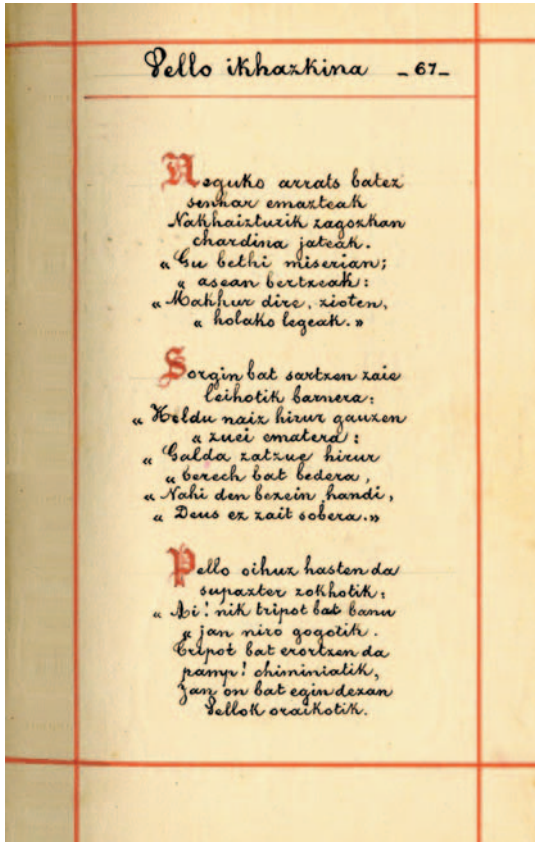 Pello ikhazkina - 67 -
Neguko arrats batez
senhar emazteak
Nakhaizturik zagozkan
chardina jateak.
« Gu bethi miserian;
« asean bertzeak:
« Makhur dire, zioten,
« holako legeak.»
Sorgin bat sartzen zaie
leihotik barnera:
« Heldu naiz hirur gauzen
« zuei ematera:
« Galda zatzue hirur
« berech bat bedera,
« Nahi den bezein handi,
« Deus ez zait sobera.»
Pello oihuz hasten da
supazter zokhotik:
« Ai! nik tripot bat banu
« jan niro gogotik.
Tripot bat erortzen da
pamp! chiminiatik,
Jan on bat egin dezan
Pellok oraikotik.